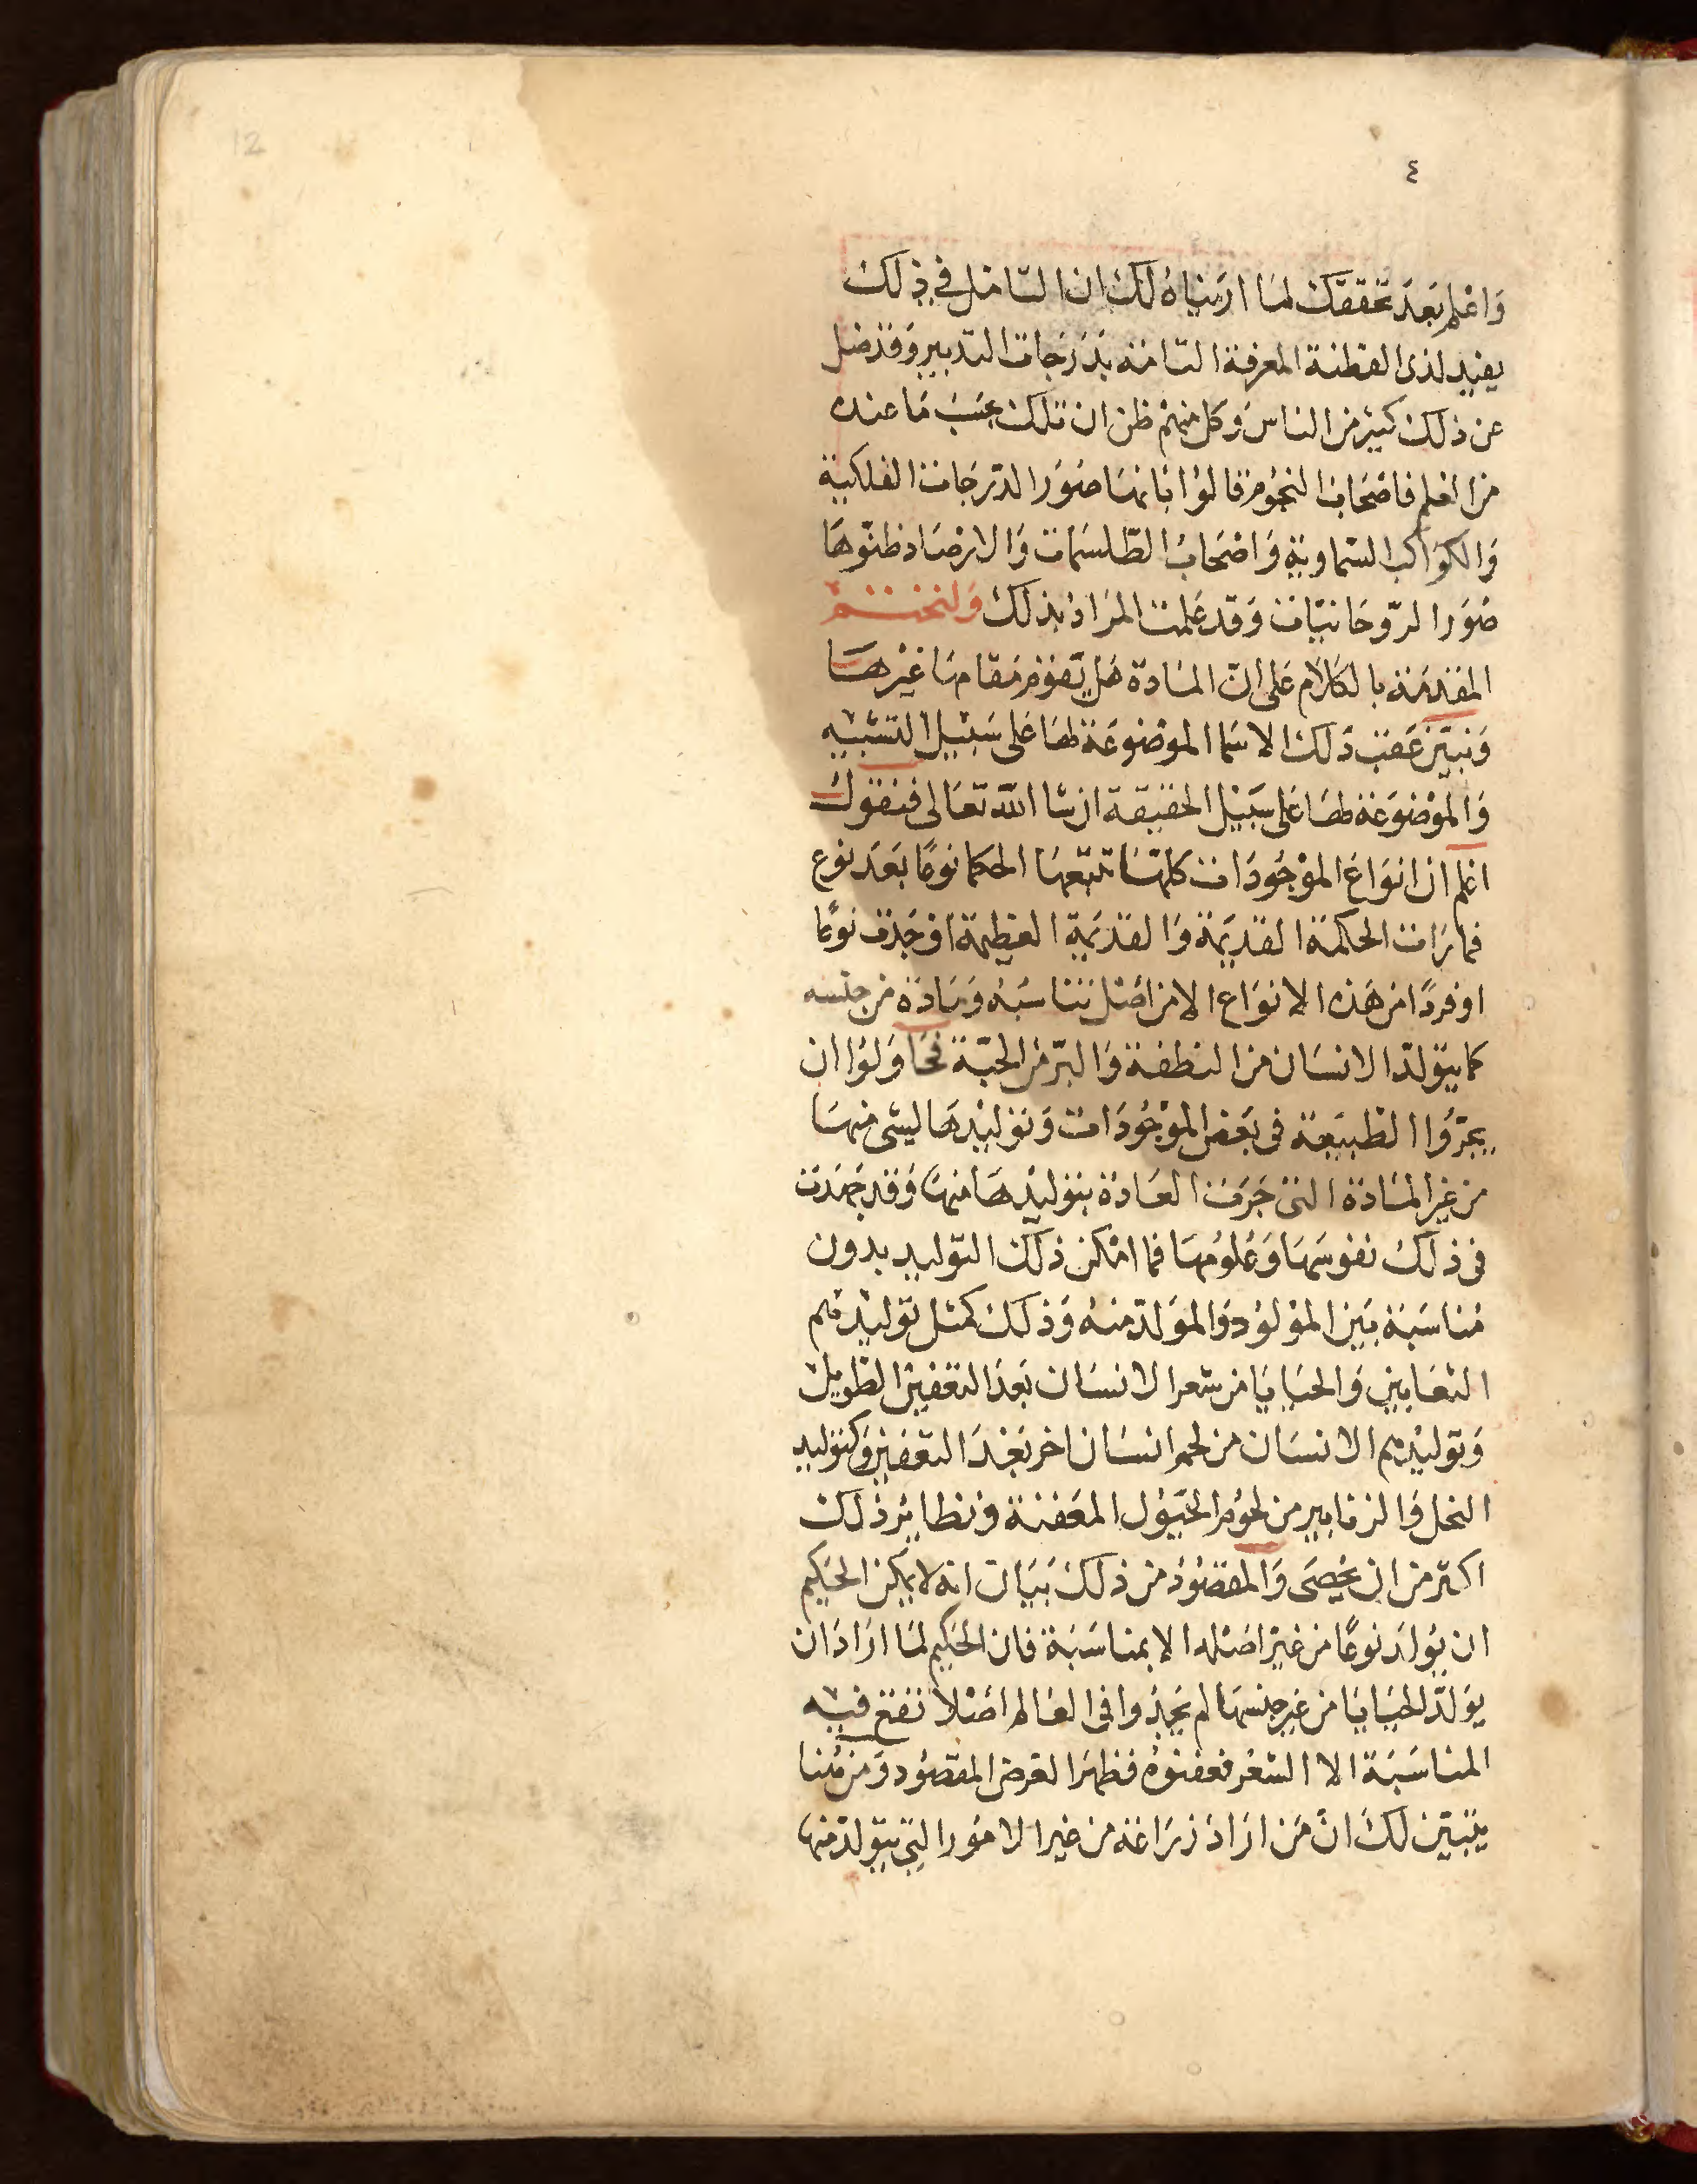 12
٤
واعلم بعد تحققك لما اريناه لك ان التامل في ذلك
يفيد لذى الفطنة المعرفة التامة بدرجات التدبير وقد ضل
عن ذلك كثير من الناس وكل منهم ظن ان تلك بحسب ما عنده
من العلم فاصحاب النجوم قالوا بانها صور الدرجات الفلكية
والكواكب السماوية واصحاب الطلسمات والارصاد ظنوها
صور الروحانيات وقد علمت المراد بذلك ولنختتم
المقدمة بالكلام على ان المادة هل يقوم مقامها غيرها
ونبين عقب ذلك الاسما الموضوعة لها على سبيل التشبيه
والموضوعة لها على سبيل الحقيقة ان شا الله تعالى فنقول
اعلم ان انواع الموجودات كلها تتبعها الحكما نوعا بعد نوع
فما رات الحكمة القديمة والقديمة العظيمة اوجدت نوعا
او فردا من هذه الانواع الا من اصل تناسبه ومادة من جنسه
كما يتولد الانسان من النطفة والبر من الحبة فحاولوا ان
يجروا الطبيعة في بعض الموجودات وتوليدها ليشى منها
من غير المادة التى جرت العادة بتوليدها منها وقد جهدت
فى ذلك نفوسها وعلومها فما امكن ذلك التوليد بدون
مناسبة بين المولود والمولد منه وذلك كمثل توليدهم
الثعابين والحيايا من شعر الانسان بعد التعفين الطويل
وتوليدهم الانسان من لحم انسان اخر بعد التعفين وكتوليد
النحل والزنابير من لحوم الخيول المعفنة ونظاير ذلك
اكثر من ان يحصى والمقصود من ذلك بيان انه لا يمكن الحكيم
ان يولد نوعا من غير اصله الا بمناسبة فان الحكيم لما اراد ان
يولد الحيايا من غير جنسها لم يجدوا فى العالم اصلا تقع فيه
المناسبة الا الشعر فعفنوه فظهر الغرض المقصود ومن هنا
يتبين لك ان من اراد زراعة من غير الامور التي يتولد منها